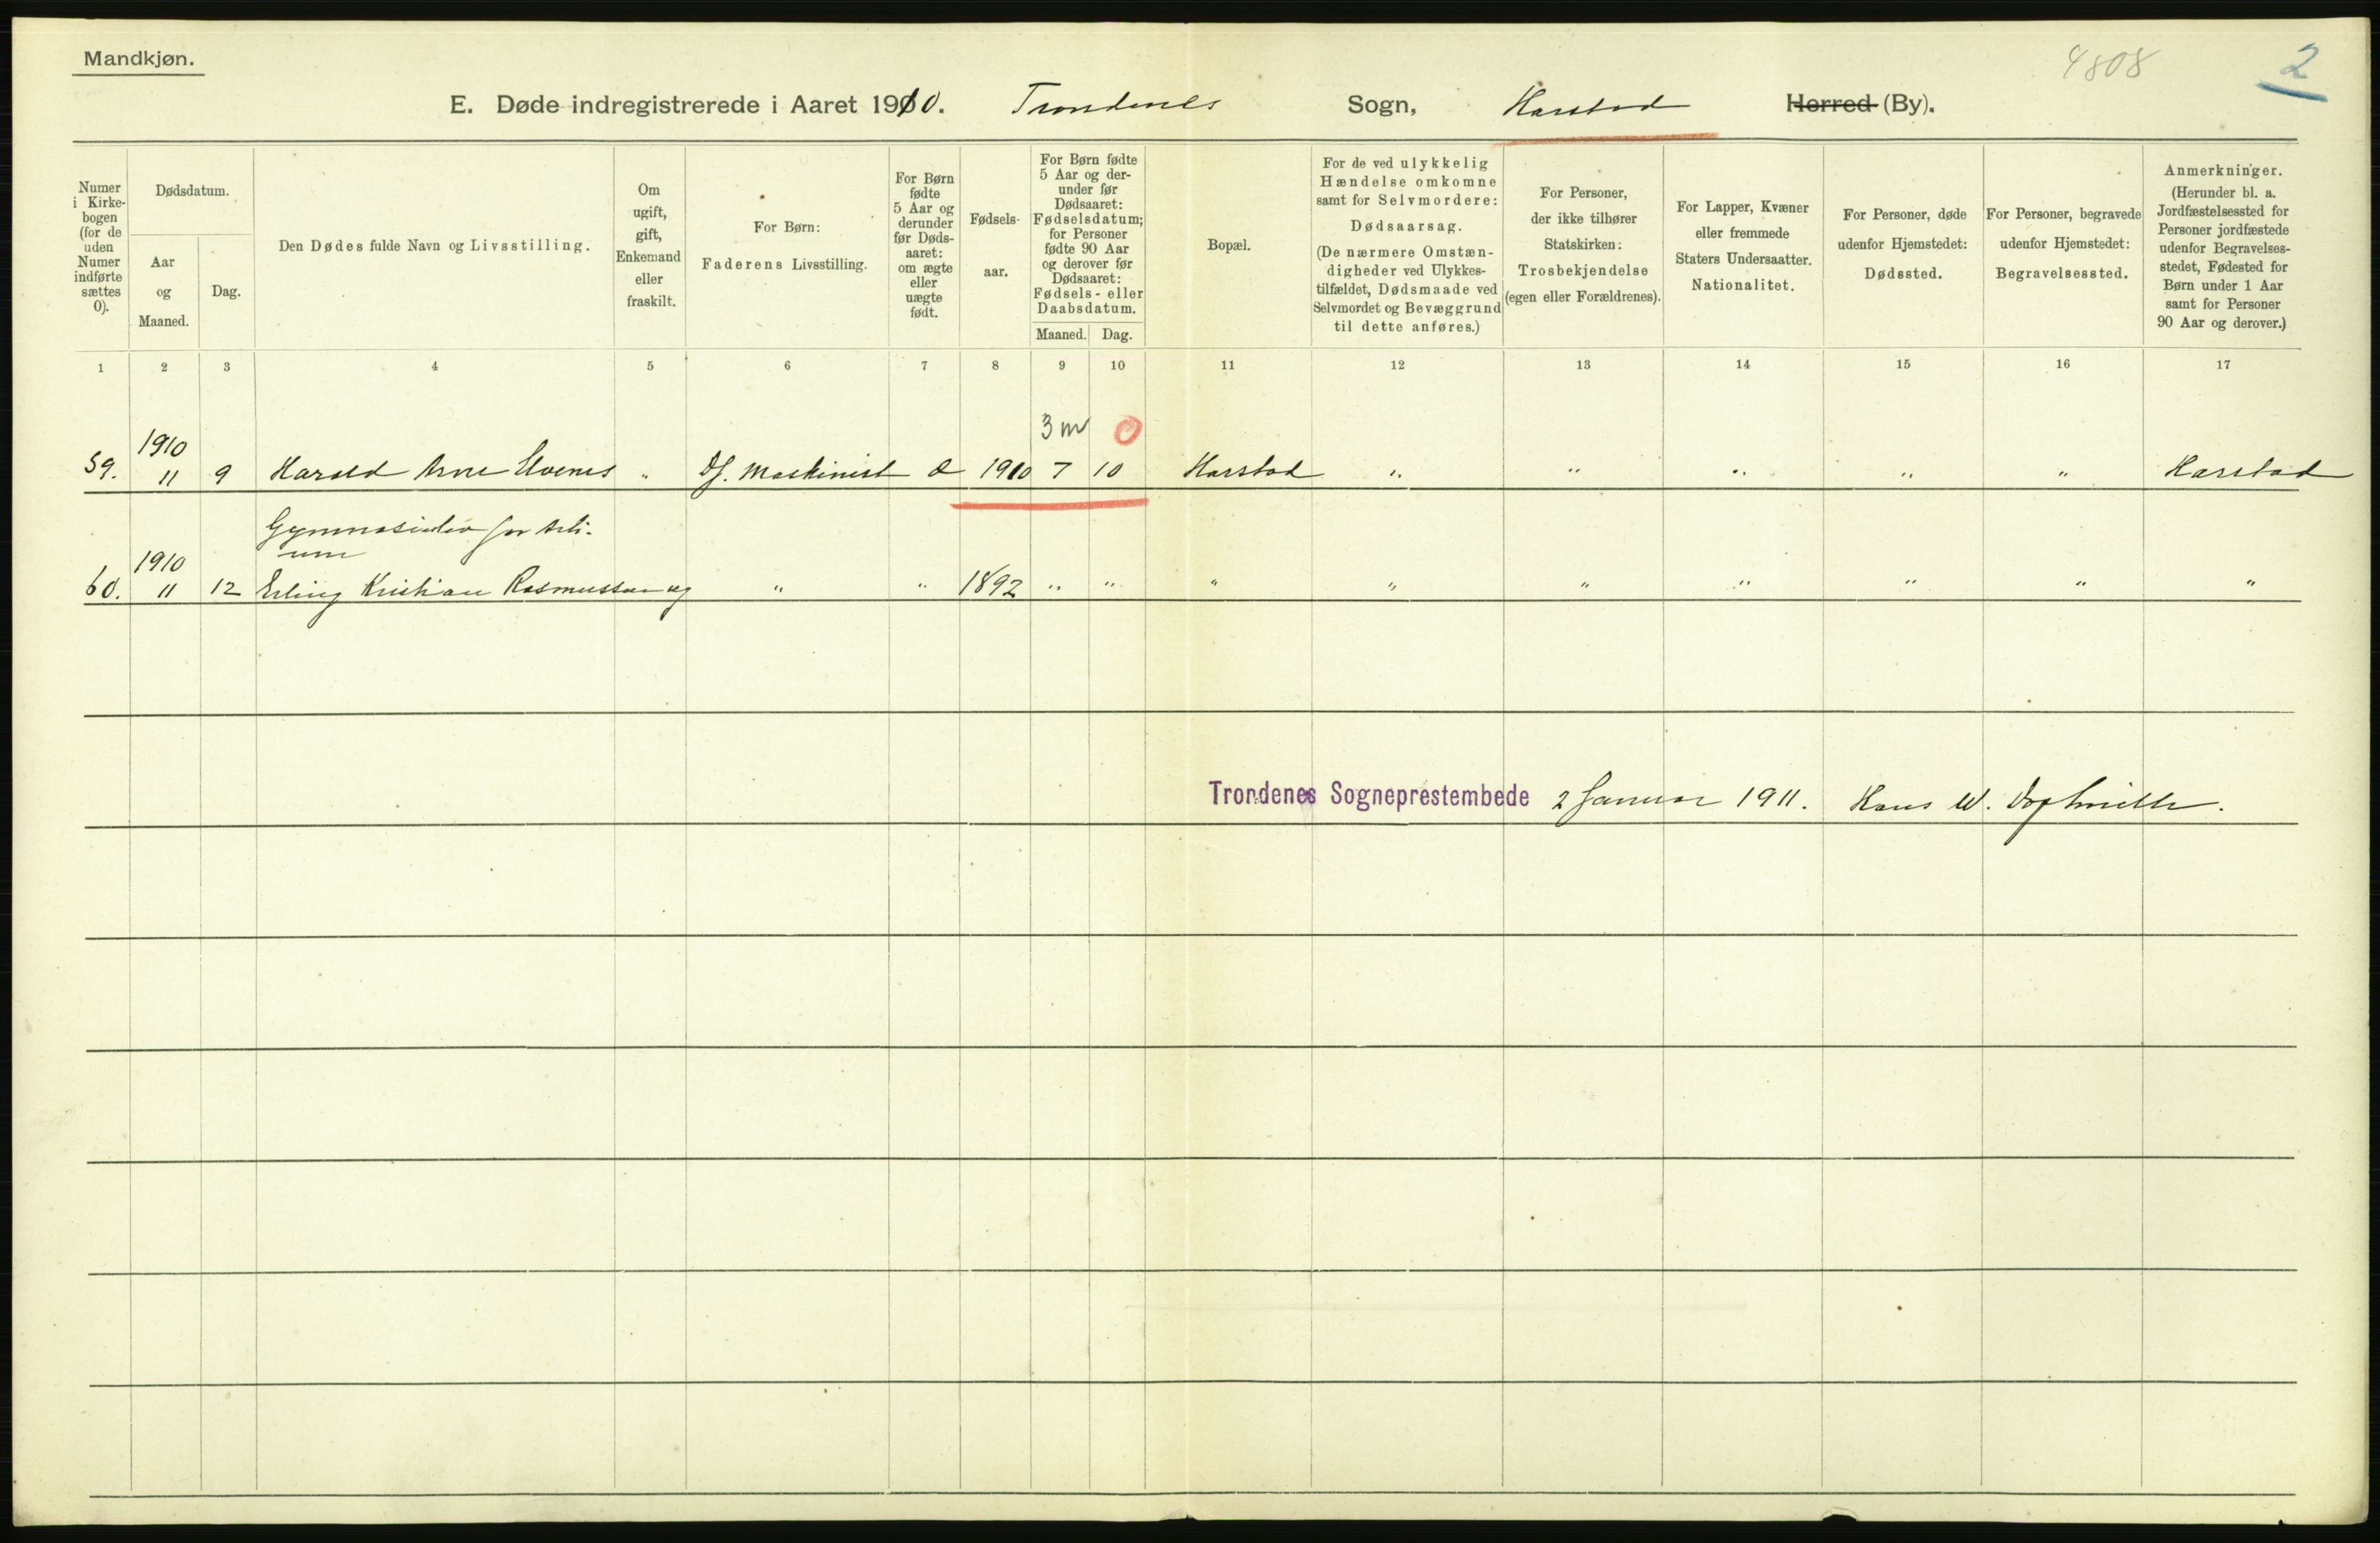 Mandkjøn.
4808
2
E. Døde indregistrerede i Aaret 1910. Trondenes Sogn, Harstad Herred (By).
Numer i Kirkebogen (for de uden Numer indførte sættes 0).
Dødsdatum.
Aar og Maaned.
Dag.
Den Dødes fulde Navn og Livsstilling.
Om ugift, gift, Enkemand eller fraskilt.
For Børn: Faderens Livsstilling.
For Børn fødte 5 Aar og derunder før Dødsaaret: om ægte eller uægte født.
Fødselsaar.
For Børn fødte 5 Aar og derunder før Dødsaaret: Fødselsdatum; for Personer fødte 90 Aar og derover før Dødsaaret: Fødsels- eller Daabsdatum.
Maaned. Dag.
Bopæl.
For de ved ulykkelig Hændelse omkomne samt for Selvmordere: Dødsaarsag. (De nærmere Omstændigheder ved Ulykkestilfældet, Dødsmaade ved Selvmordet og Bevæggrund til dette anføres.)
For Personer, der ikke tilhører Statskirken: Trosbekjendelse (egen eller Forældrenes).
For Lapper, Kvæner eller fremmede Staters Undersaatter. Nationalitet.
For Personer, døde udenfor Hjemstedet: Dødssted.
For Personer, begravede udenfor Hjemstedet: Begravelsessted.
Anmerkninger. (Herunder bl. a. Jordfæstelsessted for Personer jordfæstede udenfor Begravelsesstedet, Fødested for Børn under 1 Aar samt for Personer 90 Aar og derover.)
1 2 3 4 5 6 7 8 9 10 11 12 13 14 15 16 17
3 m 0
1910
59. 11 9 Harald Arne " Maskinist 1910 7 10 Harstad " " " " " Harstad
1910
60. 11 12 Erling Kristian Rasmussen ug " " 1892 " " " " " " " " "
Trondenes Sogneprestembede 2 Januar 1911. Hans W.